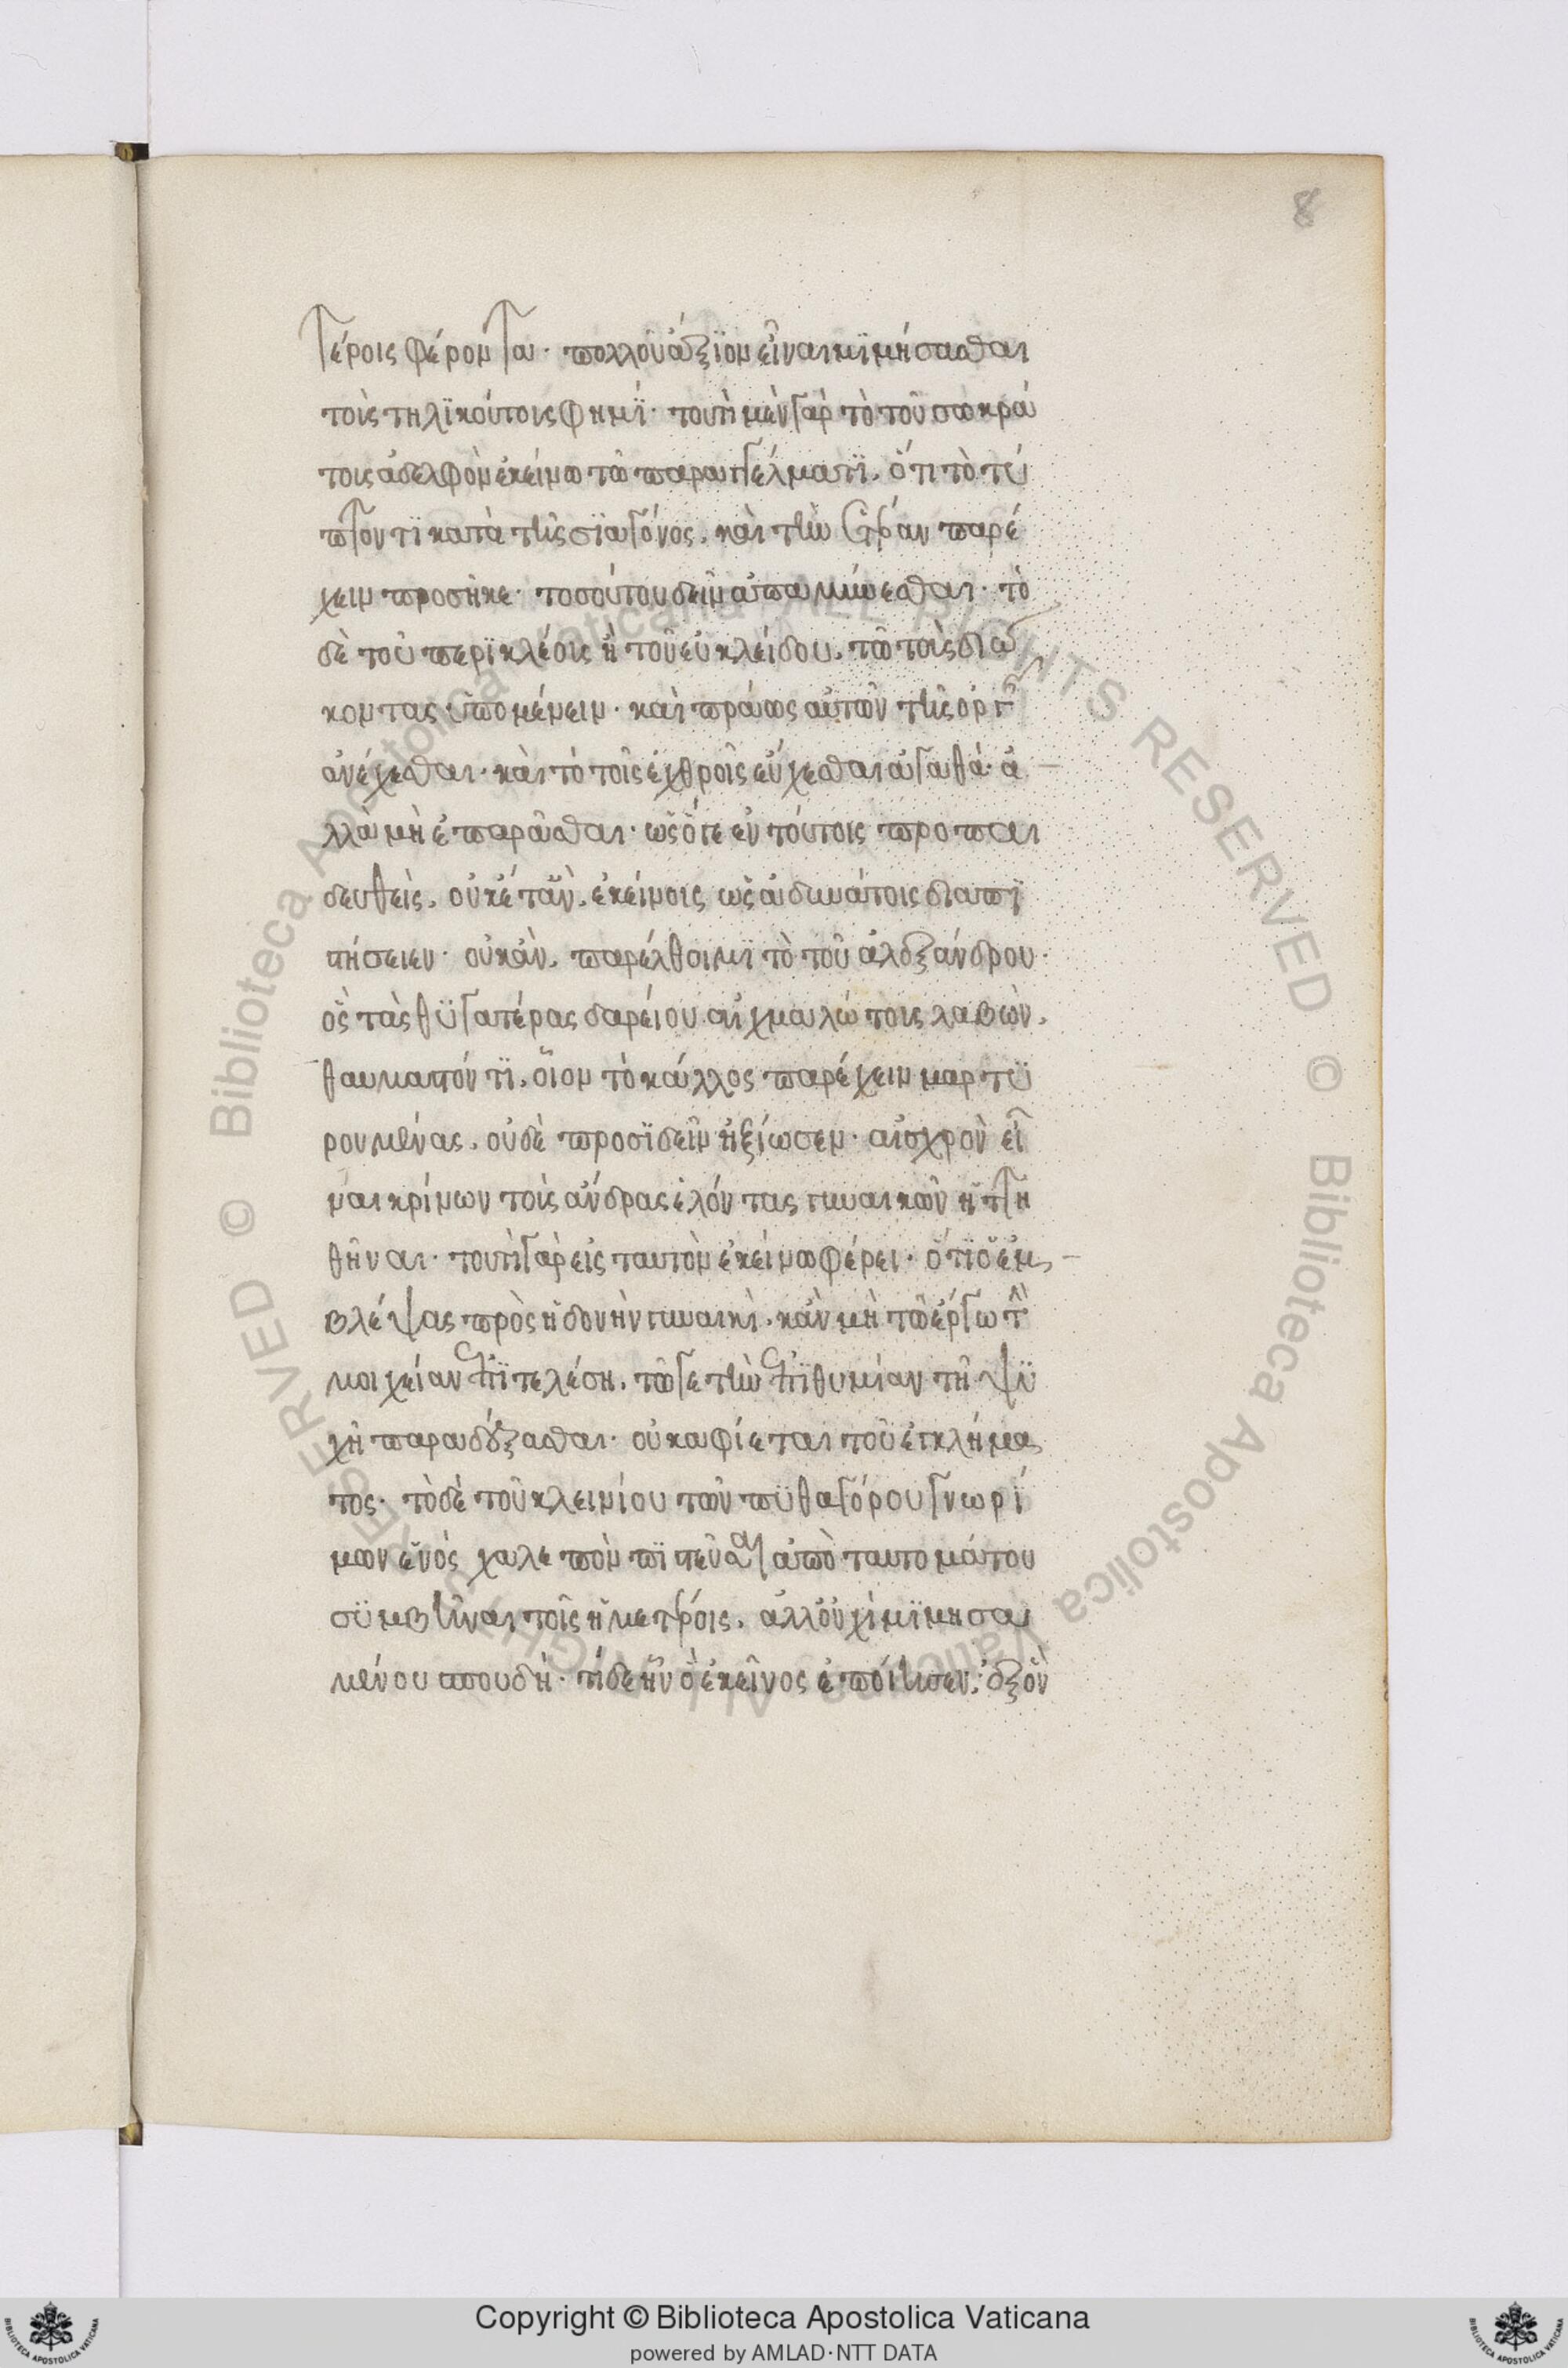 8
τέροις φέροντα· πολλοῦ ἄξϊον εἶναι μϊμήσασθαι
τοὺς τηλϊκούτους φημΐ· τουτὶ μὲν γὰρ τὸ τοῦ σωκρά
τους ἀδελφὸν ἐκείνω τῶ παραγγέλματϊ, ὅτι τὸ τύ
πτοντϊ κατὰ τῆς σϊαγόνος, καὶ τὴν ἑτέραν παρέ
χειν προσῆκε· τοσούτου δεῖν ἀπαμύνεσθαι· τὸ
δὲ τοῦ περϊκλέους ἢ τοῦ εὐκλείδου, τῶ τοὺς διώ
κοντας ὑπομένειν· καὶ πράως αὐτῶν τῆς ὀργῆς
ἀνέχεσθαι· καὶ τὸ τοῖς ἐχθροῖς εὔχεσθαι ἀγαθὰ· ἀ
λλὰ μὴ ἐπαρᾶσθαι· ὡς ὅγε ἐν τούτοις προπαι
δευθεὶς, οὐκέτ ἂν, ἐκείνοις ὡς ἀδυνάτοις διαπϊ
στήσειεν· οὐκ ἂν, παρέλθοιμϊ τὸ τοῦ ἀλεξάνδρου·
ὃς τὰς θϋγατέρας δαρείου αἰχμαλώτους λαβὼν,
θαυμαστόν τϊ, οἷον τὸ κάλλος παρέχειν μαρτϋ
ρουμένας, οὐδὲ προσϊδεῖν ἠξίωσεν· αἰσχρὸν εἶ
ναι κρίνων τοὺς ἄνδρας ἑλόντας γυναικῶν ἡττη
θῆναι· τουτὶ γὰρ εἰς ταυτὸν ἐκείνω φέρει· ὅτϊ ὁ ἐμ
βλέψας πρὸς ἡδονὴν γυναικὶ, κἂν μὴ τῶ ἔργω τὴν
μοιχείαν ἐπϊτελέση, τῶ γε τὴν ἐπϊθυμίαν τῆ ψϋ
χῆ παραδέξασθαι· οὐκ ἀφίεται τοῦ ἐγκλήμα
τος· τὸ δὲ τοῦ κλεινίου τῶν πϋθαγόρου γνωρί
μων ἑνὸς χαλεπὸν πϊστεῦσαι ἀπὸ ταυτομάτου
σϋμβῆναι τοῖς ἡμετέροις, ἀλλ' οὐχὶ μϊμησα
μένου σπουδῆ· τί δὲ ἦν ὃ ἐκεῖνος ἐποίησεν; ἐξὸν
Copyright © Biblioteca Apostolica Vaticana
powered by AMLAD·NTT DATA